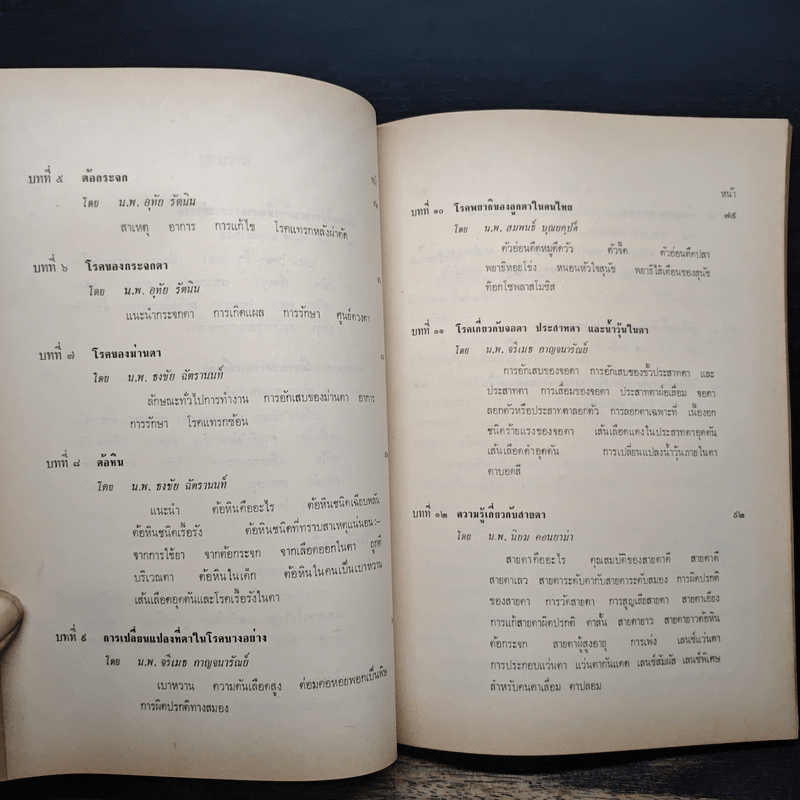 บทที่ ๕ ต้อกระจก
โดย น.พ. อุทัย รัตนิน
สาเหตุ อาการ การแก้ไข โรคแทรกหลังผ่าตัด
บทที่ ๖ โรคของกระจกตา
โดย น.พ. อุทัย รัตนิน
แนะนำกระจกตา การเกิดแผล การรักษา ศูนย์ดวงตา
บทที่ ๗ โรคของม่านตา
โดย น.พ. ธงชัย ฉัตรานนท์
ลักษณะทั่วไปการทำงาน การอักเสบของม่านตา อาการ
การรักษา โรคแทรกซ้อน
บทที่ ๘ ต้อหิน
โดย น.พ. ธงชัย ฉัตรานนท์
แนะนำ ต้อหินคืออะไร ต้อหินชนิดเฉียบพลัน
ต้อหินชนิดเรื้อรัง ต้อหินชนิดที่ทราบสาเหตุแน่นอน :–
จากการใช้ยา จากต้อกระจก จากเลือดออกในตา ถูกตี
บริเวณตา ต้อหินในเด็ก ต้อหินในคนเป็นเบาหวาน
เส้นเลือดอุดตันและโรคเรื้อรังในตา
บทที่ ๙ การเปลี่ยนแปลงที่ตาในโรคบางอย่าง
โดย น.พ. จริเมธ กาญจนารัณย์
เบาหวาน ความดันเลือดสูง ต่อมคอหอยพอกเป็นพิษ
การผิดปรกติทางสมอง
หน้า
บทที่ ๑๐ โรคพยาธิของลูกตาในคนไทย ๗๕
โดย น.พ. สมพนธ์ บุณยคุปต์
ตัวอ่อนตืดหมูตืดวัว ตัวจี๊ด ตัวอ่อนตืดปลา
พยาธิหอยโข่ง หนอนหัวใจสุนัข พยาธิไส้เดือนของสุนัข
ท็อกโซพลาสโมซิส
บทที่ ๑๑ โรคเกี่ยวกับจอตา ประสาทตา และน้ำวุ้นในตา
โดย น.พ. จริเมธ กาญจนารัณย์
การอักเสบของจอตา การอักเสบของขั้วประสาทตา และ
ประสาทตา การเสื่อมของจอตา ประสาทตาฝ่อเสื่อม จอตา
ลอกตัวหรือประสาทตาลอกตัว การลอกตาเฉพาะที่ เนื้องอก
ชนิดร้ายแรงของจอตา เส้นเลือดแดงในประสาทตาอุดตัน
เส้นเลือดดำอุดตัน การเปลี่ยนแปลงน้ำวุ้นภายในตา
ตาบอดสี
บทที่ ๑๒ ความรู้เกี่ยวกับสายตา ๙๒
โดย น.พ. นิยม คอนยาม่า
สายตาคืออะไร คุณสมบัติของสายตาดี สายตาดี
สายตาเลว สายตาระดับตากับสายตาระดับสมอง การผิดปรกติ
ของสายตา การวัดสายตา การสูญเสียสายตา สายตาเอียง
การแก้สายตาผิดปรกติ ตาสั้น สายตายาว สายตายาวต้อหิน
ต้อกระจก สายตาผู้สูงอายุ การเพ่ง เลนซ์แว่นตา
การประกอบแว่นตา แว่นตากันแดด เลนซ์สัมผัส เลนซ์พิเศษ
สำหรับคนตาเสื่อม ตาปลอม